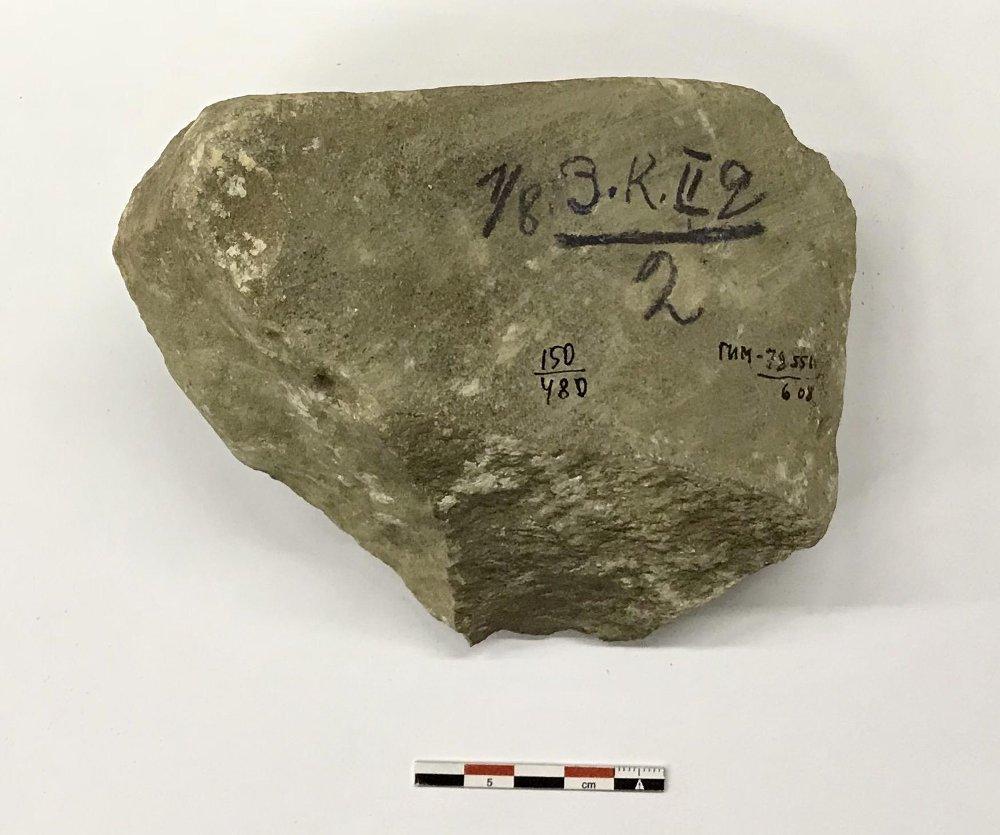 1/8 З.К.II 2
2
150
480
ГИМ-79551
608
5 cm